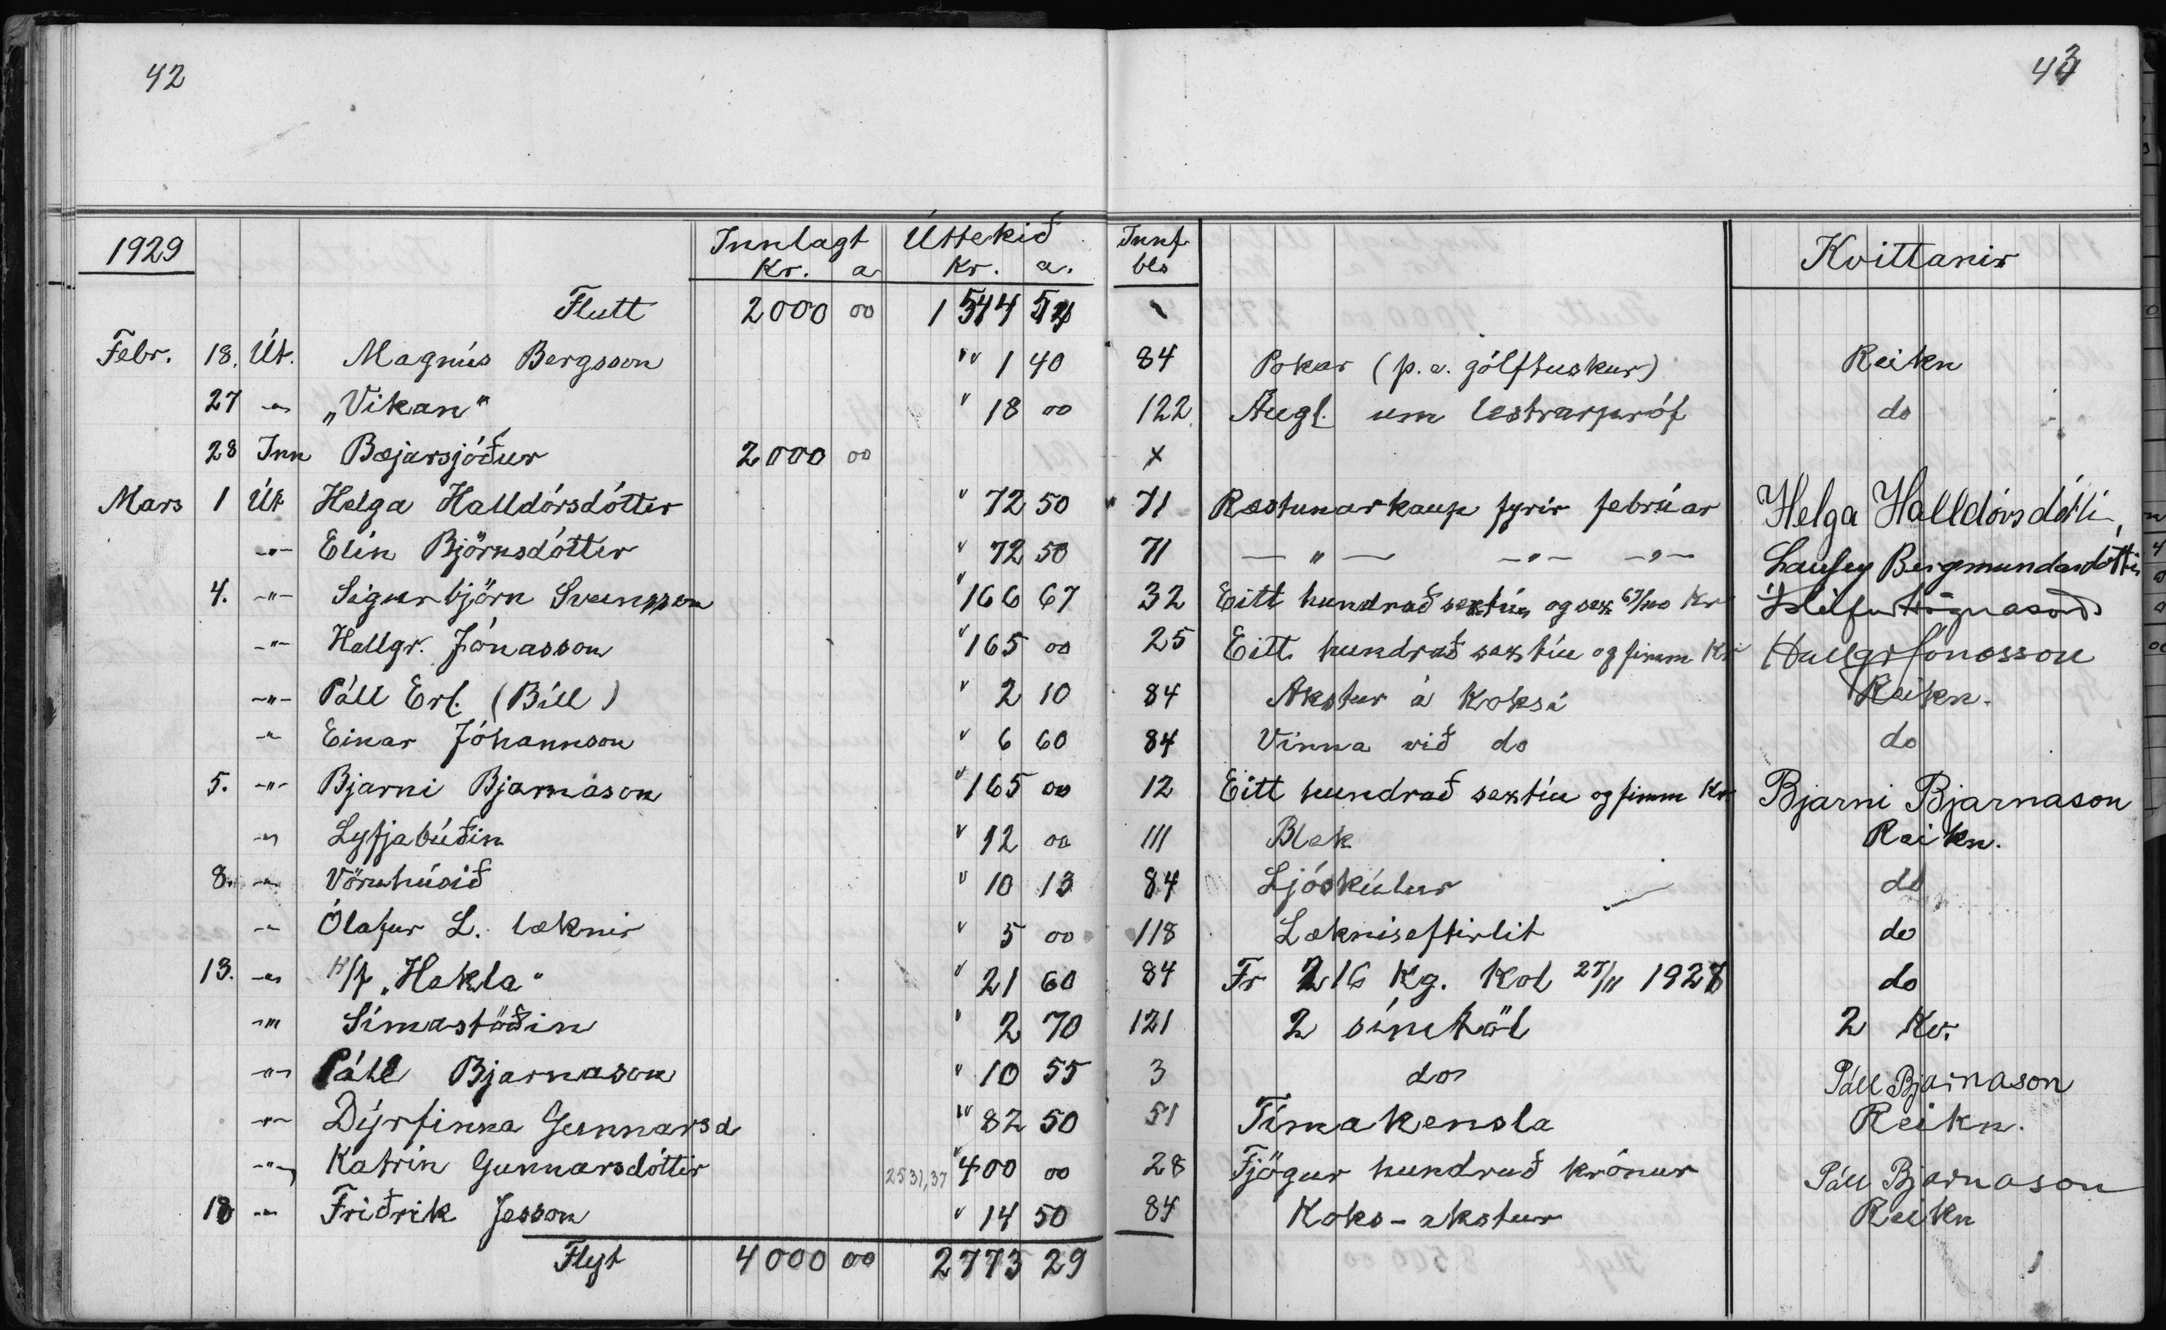 42
43
1929 Innlagt Úttekið Innf. Kvittanir
Kr. a Kr. a. bls
Flutt 2000 00 1544 54
Febr. 18. Út. Magnús Bergsson " 1 40 84 Pokar (p. a. gólftuskur) Reikn
27 -"- „Vikan“ " 18 00 122 Augl. um lestrarpróf do
28 Inn Bæjarsjóður 2000 00 x
Mars 1 Út Helga Halldórsdóttir " 72 50 71 Ræstunarkaup fyrir febrúar Helga Halldórsdótti
-"- Elín Björnsdóttir " 72 50 71 -"- -"- -"- Laufey Bergmundardóttir
4. -"- Sigurbjörn Sveinsson " 166 67 32 Eitt hundrað sextíu og sex 67/100 Kr
-"- Hallgr. Jónasson " 165 00 25 Eitt hundrað sextíu og fimm Kr Hallgr Jónasson
-"- Páll Erl. (Bíll) " 2 10 84 Akstur á Koksi Reikn.
-"- Einar Jóhannson " 6 60 84 Vinna við do do
5. -"- Bjarni Bjarnason " 165 00 12 Eitt hundrað sextíu og fimm Kr. Bjarni Bjarnason
-"- Lyfjabúðin " 12 00 111 Blek Reikn.
8. -"- Vöruhúsið " 10 13 84 Ljóskúlur do
-"- Ólafur L. læknir " 5 00 118 Lækniseftirlit do
13. -"- H/f „Hekla“ " 21 60 84 Fr 216 Kg. Kol 27/11 1928 do
-"- Símastöðin " 2 70 121 2 símtöl 2 Kv.
-"- Páll Bjarnason " 10 55 3 do Páll Bjarnason
-"- Dýrfinna Gunnarsd " 82 50 51 Tímakensla Reikn.
-"- Katrín Gunnarsdóttir 2531,37 " 400 00 28 Fjögur hundruð krónur Páll Bjarnason
18 -"- Friðrik Jesson " 14 50 84 Koks-akstur Reikn
Flyt 4000 00 2773 29